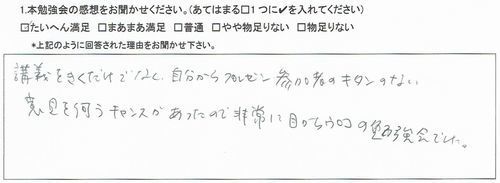 1.本勉強会の感想をお聞かせください。(あてはまる□1つに✔を入れてください)
☑たいへん満足 □まあまあ満足 □普通 □やや物足りない □物足りない
*上記のように回答された理由をお聞かせ下さい。
講義をきくだけでなく、自分からプレゼン 参加者のキタンのない
意見を伺うチャンスがあったので非常に目からウロコの勉強会でした。